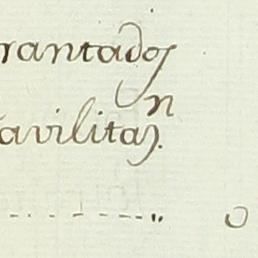 rantados
n
avilitas.
"
o